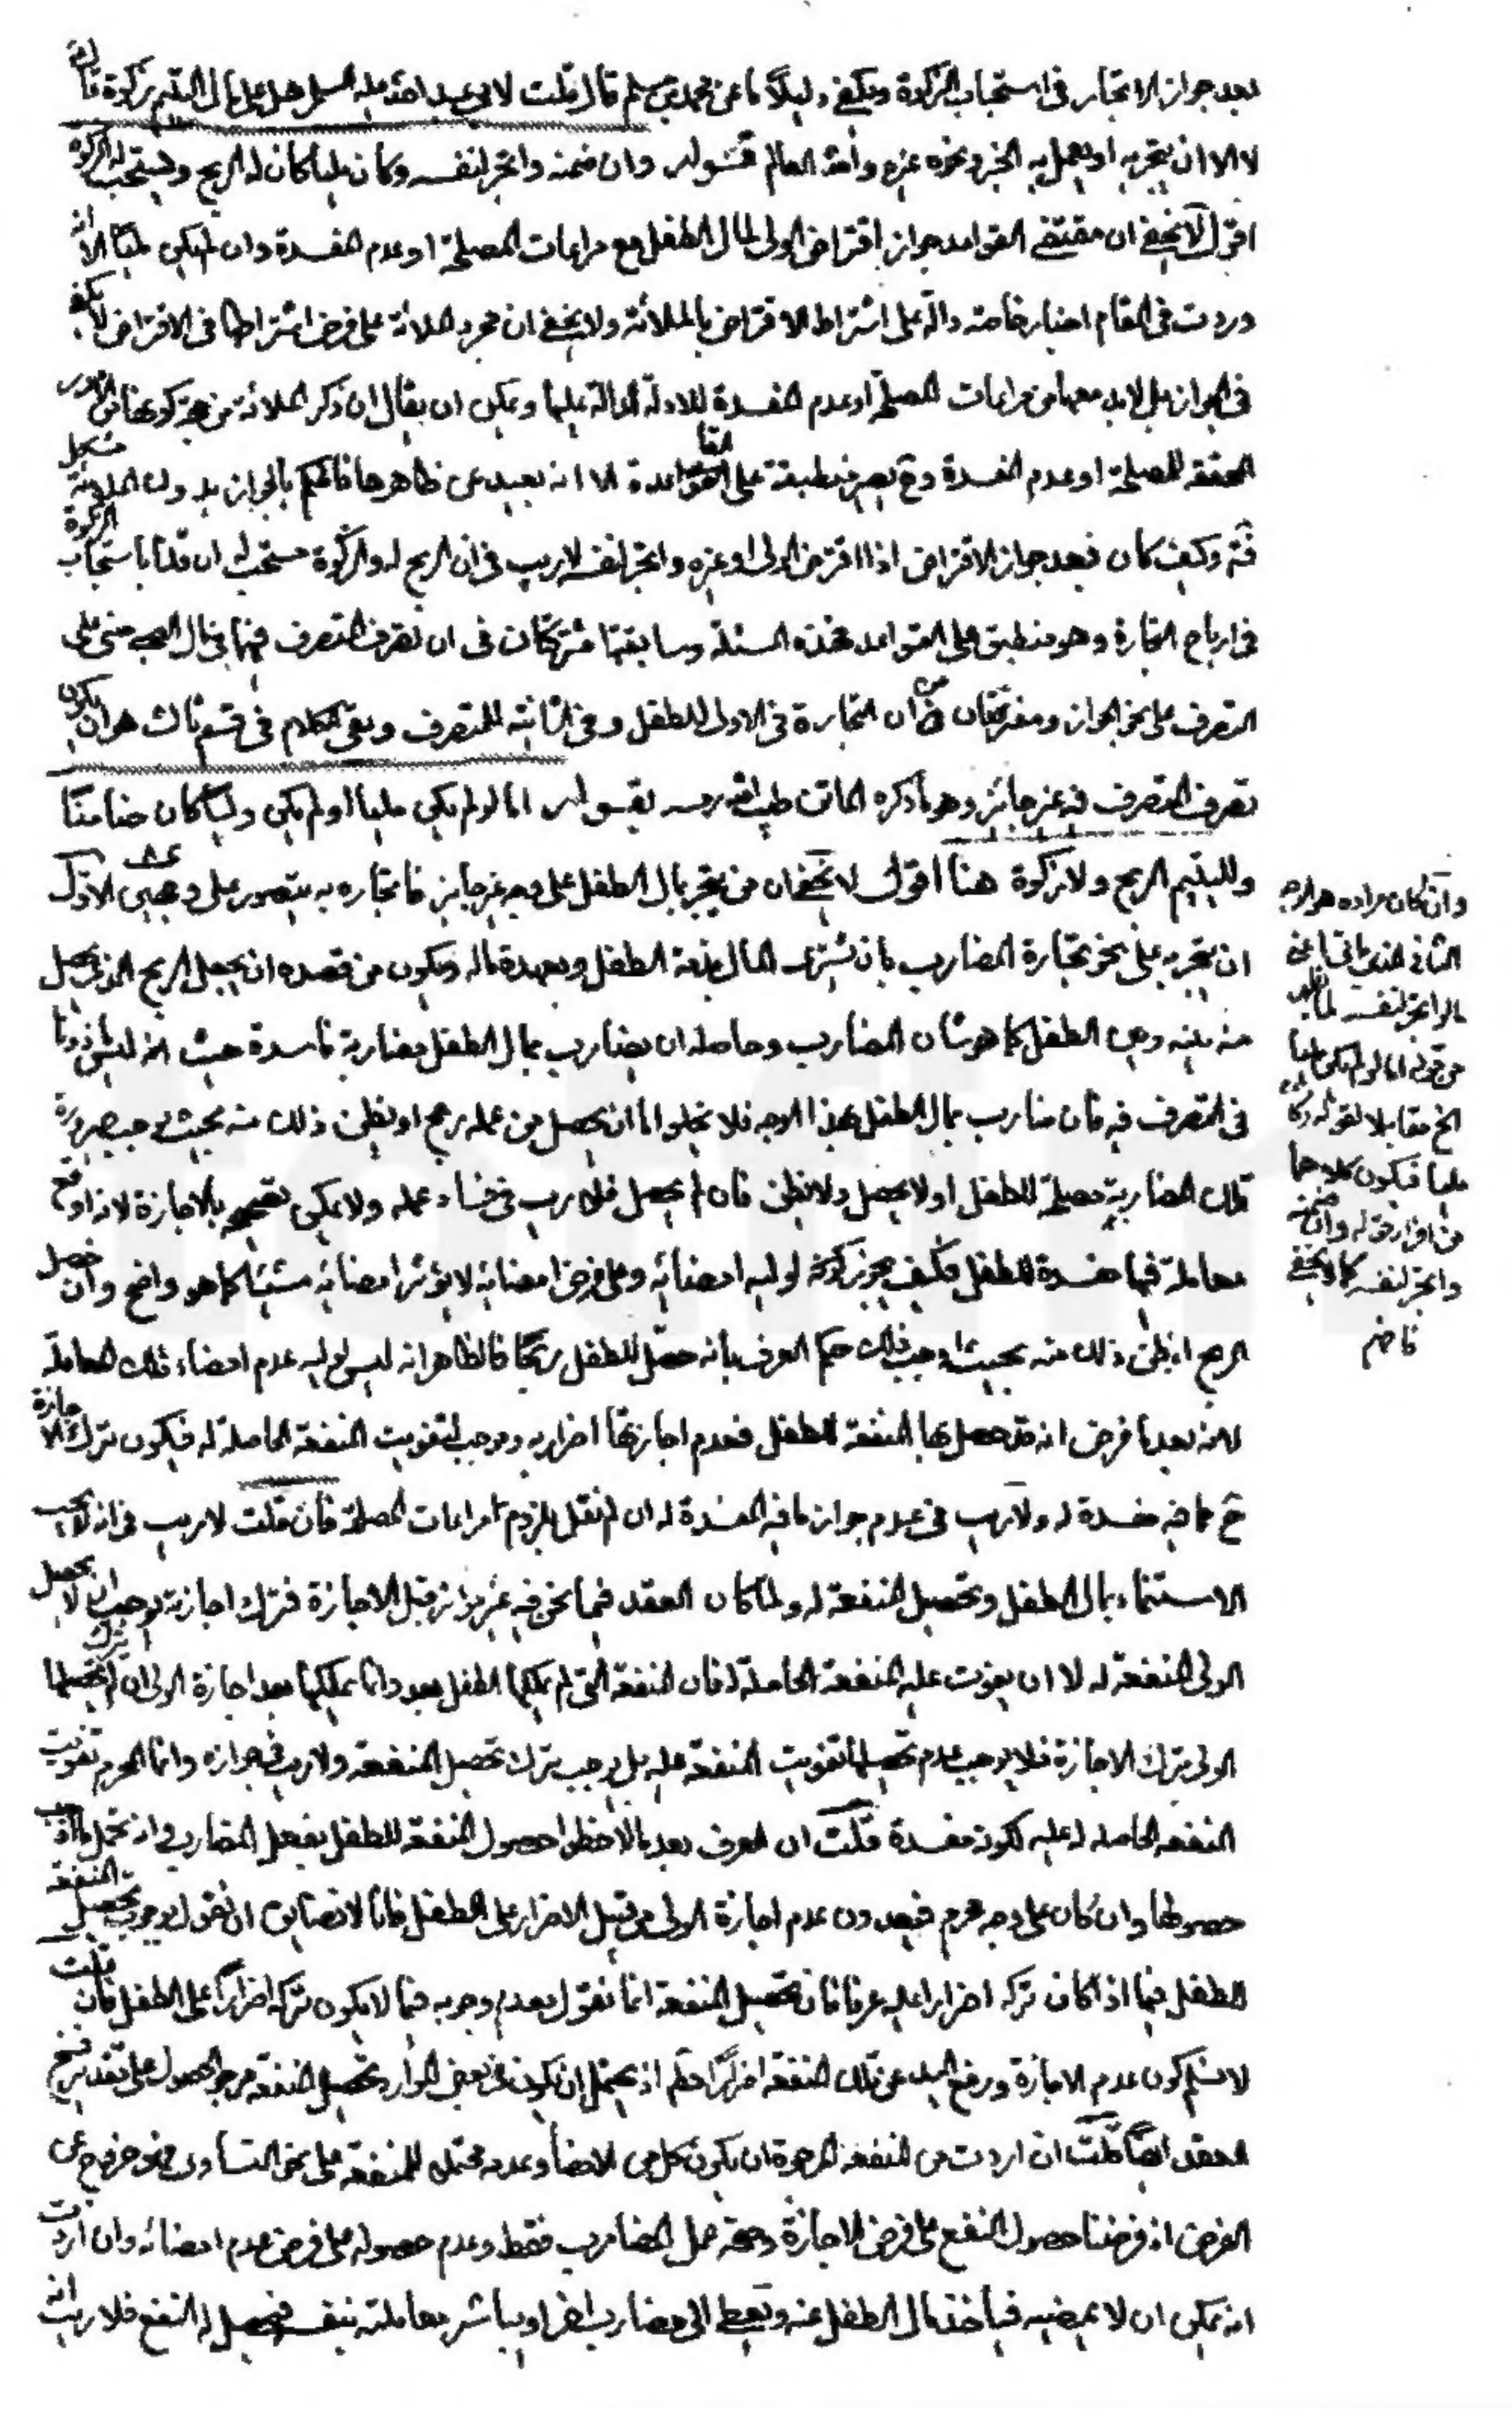 بعد جواز الاتجار فى استحباب الزكوة ويكفى دليلاً ما عن محمد بن مسلم قال قلت لابى عبد الله عليه السلم هل على مال اليتيم زكوة قال
لا الا ان يتجر به او يعمل به الخبر ونحوه غيره والله العالم قوله وان ضمنه واتجر لنفسه وكان مليا كان له الربح ويستحب له الزكوة
اقول لا يخفى ان مقتضى القواعد جواز اقتراض الولى لمال الطفل مع مراعات المصلحة او عدم المفسدة وان لم يكن مليا الا انه
وردت فى المقام اخبار خاصة دالة على اشتراط الاقتراض بالملائة ولا يخفى ان مجرد الملائة على فرض اشتراطها فى الاقتراض لا يكفى
فى الجواز بل لابد معها من مراعات المصلحة او عدم المفسدة للادلة الدالة عليها ويمكن ان يقال ان ذكر الملائة من جهة كونها من الامور
المحققة للمصلحة او عدم المفسدة وح يصير منطبقة على القاعدة الا انه بعيد عن ظاهرها فالحكم بالجواز بدون الملائة مشكل
وكيف كان فبعد جواز الاقتراض اذا اقترض الولى او غيره واتجر لنفسه لا ريب فى ان الربح له والزكوة مستحب له ان قلنا باستحباب الزكوة
فى ارباح التجارة وهو منطبق على القواعد فهذه المسئلة وسابقتها مشتركتان فى ان تصرف المتصرف فيهما فى مال الصبى مبنى على
التصرف على نحو الجواز ومفترقتان من ان التجارة فى الاولى للطفل وفى الثانية للمتصرف وبقى الكلام فى قسم ثالث هو ان يكون
تصرف المتصرف فيه غير جائز وهو ما ذكره الماتن طيب الله رمسه بقوله اما لو لم يكن مليا او لم يكن وليا كان ضامنا
ولليتيم الربح ولا زكوة هنا اقول لا يخفى ان من يتجر بمال الطفل على وجه غير جايز فاتجاره به يتصور على وجهين الاول
ان يتجر به على نحو تجارة المضارب بان يشترى المال بذمة الطفل وبعهدة ماله ويكون من قصده ان يجعل الربح الذى يحصل
منه بينه وبين الطفل كما هو شان المضارب وحاصله ان يضارب بمال الطفل مضاربة فاسدة حيث انه ليس ماذونا
فى التصرف فيه فان ضارب بمال الطفل بهذا الوجه فلا يخلوا اما ان يحصل من عمله ربح او يظن ذلك منه بحيث يوجب صيرورة
تلك المضاربة مصلحة للطفل او لا يحصل ولا يظن فان لم يحصل فلا ريب فى فساد عمله ولا يمكن تصحيحه بالاجازة لانه اوقع
معاملة فيها مفسدة للطفل فكيف يجوز لوليه امضائه وعلى فرض امضائه لا يؤثر امضائه شيئا كما هو واضح وان حصل
الربح او يظن ذلك منه بحيث اوجب ذلك حكم العرف بانه حصّل للطفل ربحًا فالظاهر انه ليس لوليه عدم امضاء تلك المعاملة
لانه بعد ما فرض انه قد حصل بها المنفعة للطفل فعدم اجازتها اضرار به وموجب لتفويت المنفعة الحاصلة له فيكون ترك الاجازة
ح مما فيه مفسدة له ولا ريب فى عدم جواز ما فيه المفسدة له ان لم نقل بلزوم مراعات المصلحة فان قلت لا ريب فى انه لا يجب
الاستنماء بمال الطفل وتحصيل المنفعة له ولما كان العقد فيما نحن فيه غير جائز قبل الاجازة فترك اجازته يوجب ان لا يحصل
الولى المنفعة له لا ان يفوت عليه المنفعة الحاصلة له فان المنفعة التى لم يملكها الطفل بعد وانما يملكها بعد اجازة الولى ان لم يحصلها
الولى بترك الاجازة فلا يوجب عدم تحصيلها تفويت المنفعة عليه بل يوجب ترك تحصيل المنفعة ولا ريب فى جوازه وانما المحرم تفويت
النفعه الحاصلة له عليه لكونه مفسدة قلت ان العرف بعد ما لاحظوا حصول المنفعة للطفل بفعل المضارب وانه تحمل ما اوجب
حصولها وان كان على وجه محرم فيعدون عدم اجازة الولى من قبيل الاضرار على الطفل فانا لا نضايق ان نقول بوجوب تحصيل المنفعة
للطفل فيما اذا كان تركه اضرارا عليه عرفا فان تحصيل المنفعة انما نقول بعدم وجوبه فيما لا يكون تركه اضرارًا على الطفل فان قلت
لا نسلم كون عدم الاجازة ورفع اليد عن تلك المنفعة اضرارًا حقه اذ يحتمل ان يكون فى بعض الموارد تحصيل المنفعة مرجو الحصول على تقدير فسخ
العقد ايضًا قلت ان اردت من المنفعة المرجوة ان يكون كل من الامضاء وعدمه محتمل للمنفعة على نحو التساوى فهو خروج عن
الفرض اذ فرضنا حصول النفع على فرض الاجازة وصحة عمل المضارب فقط وعدم حصوله على فرض عدم امضائه وان اردت
انه يمكن ان لا يمضيه فياخذ مال الطفل عنه ويعطى الى مضارب اخر او يباشر معاملته بنفسه فيحصل له النفع فلا ريب انه
وان كان مراده هو الوجه
الثانى الذى ياتى اعنى
ما لو اتجر لنفسه لما يظهر
من قوله اما لو لم يكن مليا
الخ مقابلا لقوله وكان
مليا فيكون كلاهما
من افراد قوله وان ضمنه
واتجر لنفسه كما لا يخفى
فافهم